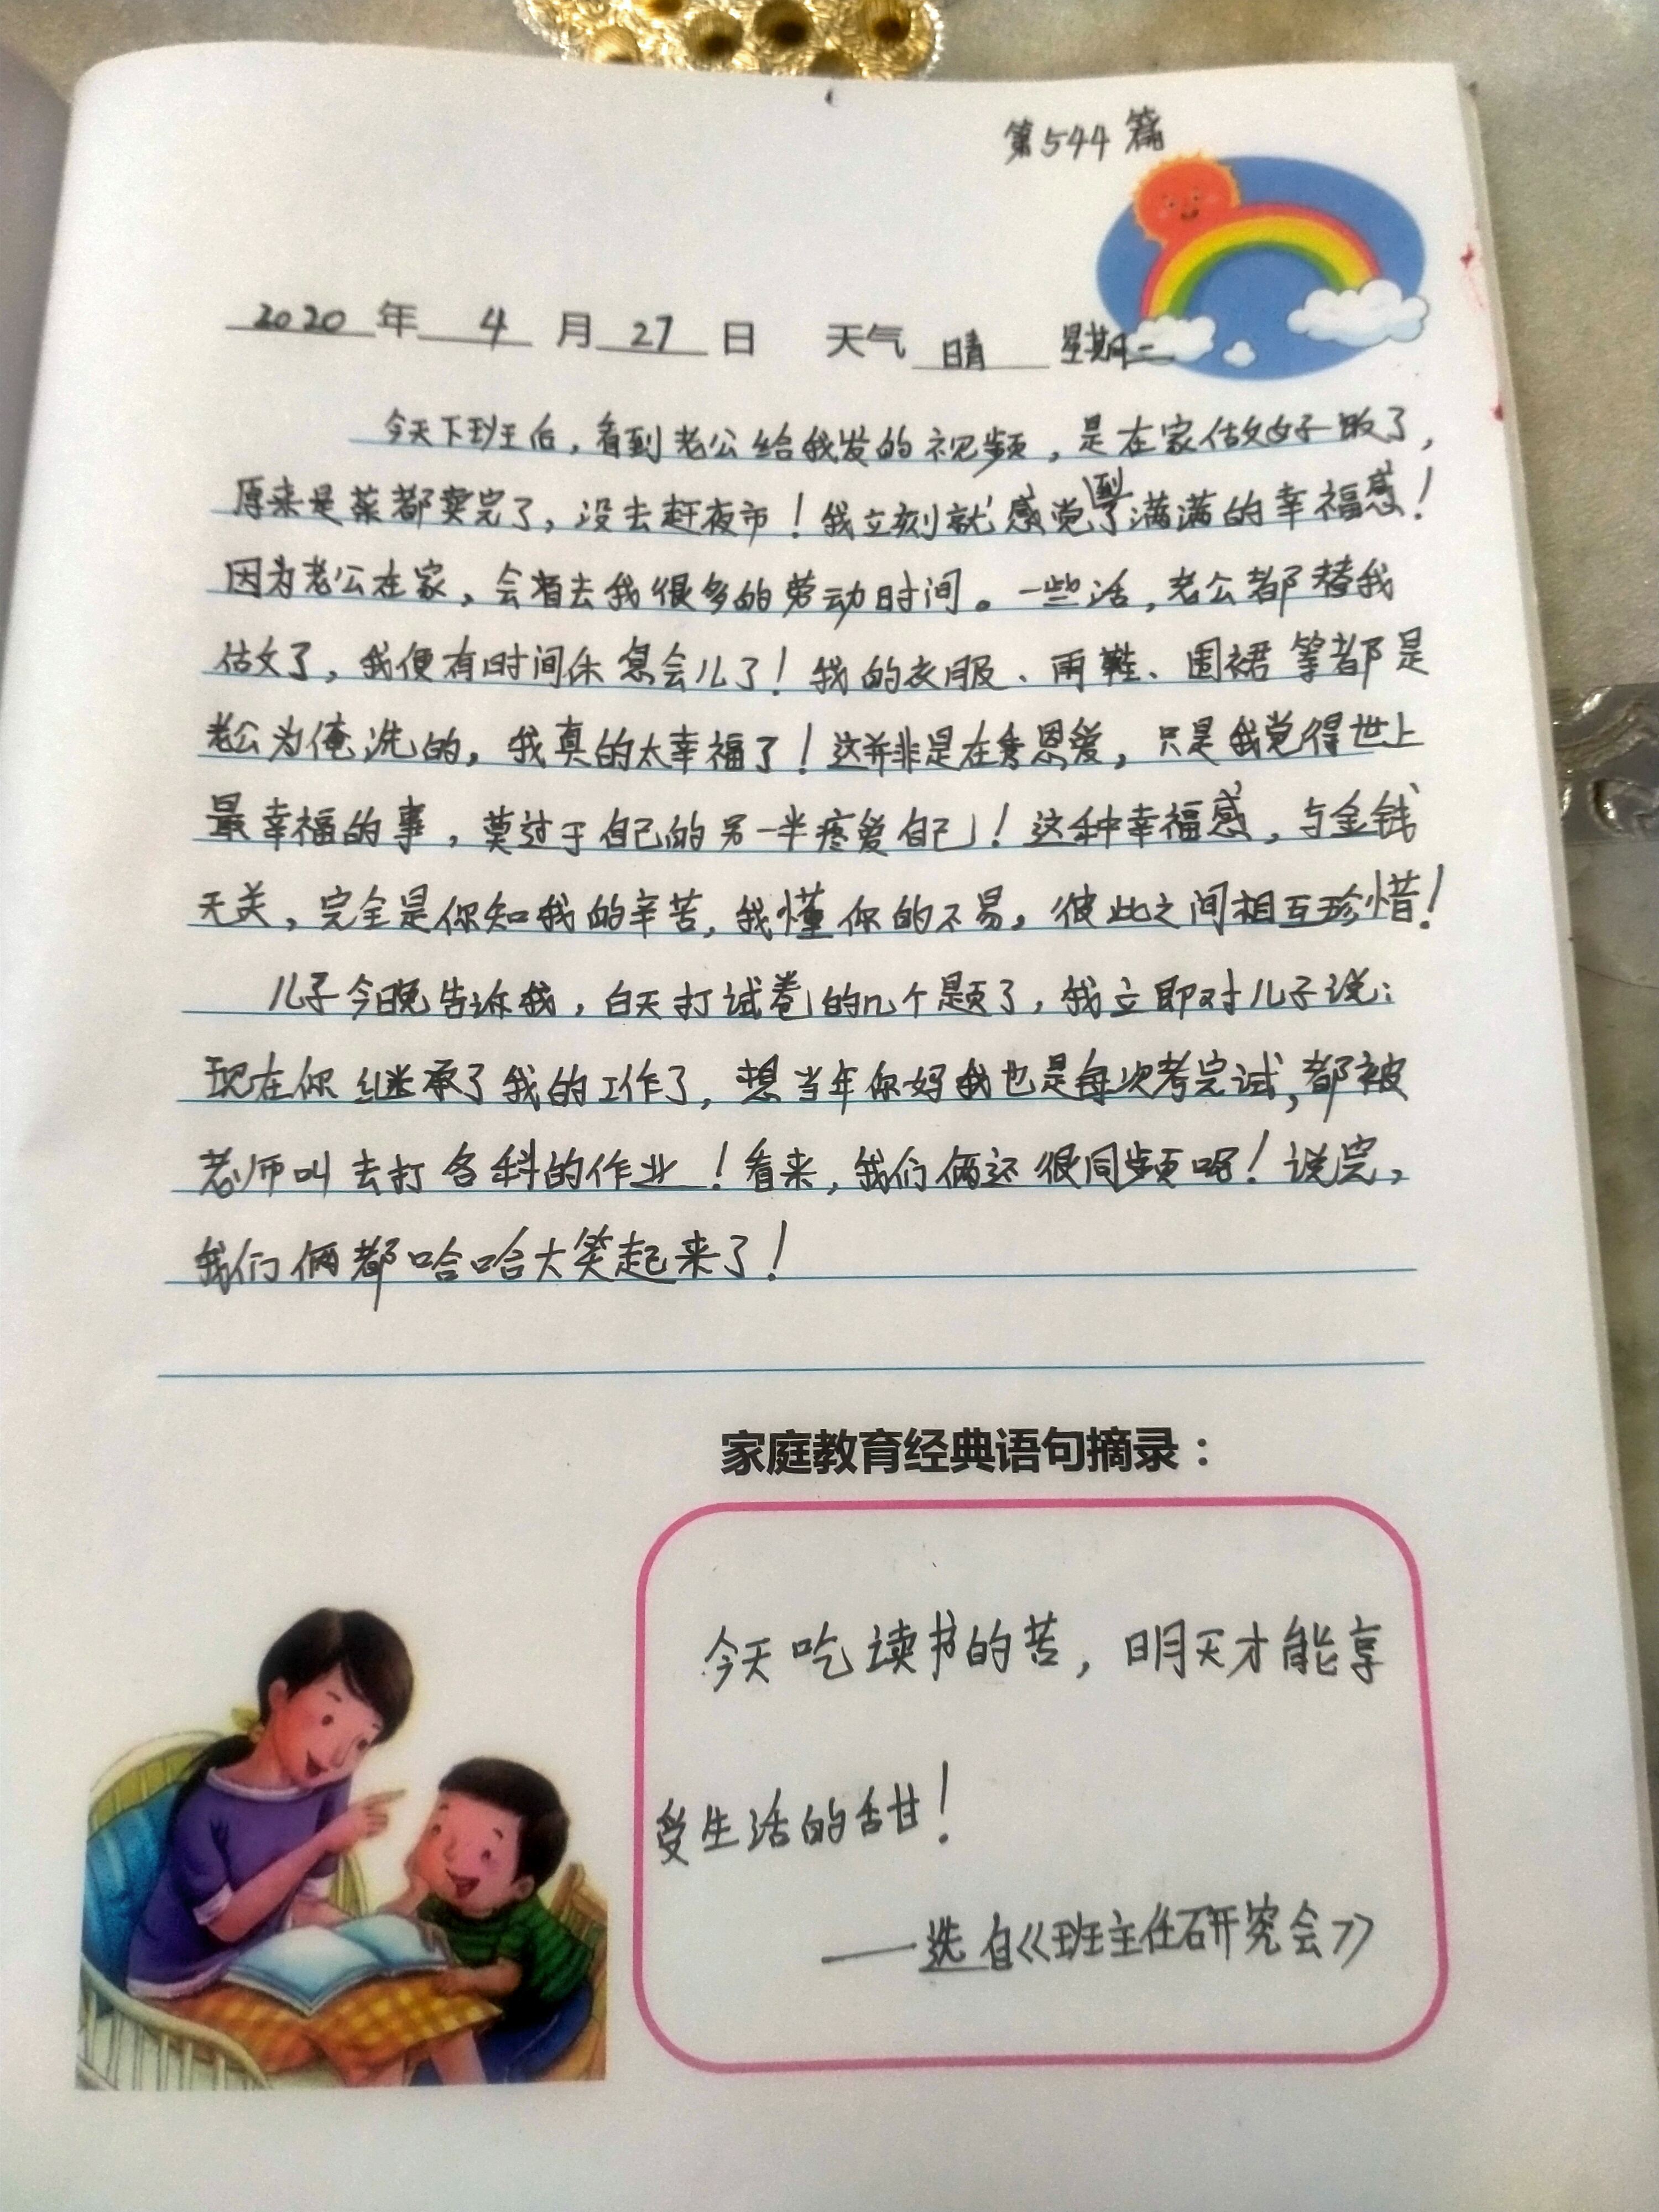 第544篇
2020年 4月27日 天气 晴 星期一
今天下班后，看到老公给我发的视频，是在家做好饭了，
原来是菜都卖完了，没去赶夜市！我立刻就感觉到了满满的幸福感！
因为老公在家，会省去我很多的劳动时间。一些活，老公都替我
做了，我便有时间休息会儿了！我的衣服、雨鞋、围裙等都是
老公为俺洗的，我真的太幸福了！这并非是在秀恩爱，只是我觉得世上
最幸福的事，莫过于自己的另一半疼爱自己！这种幸福感，与金钱
无关，完全是你知我的辛苦，我懂你的不易，彼此之间相互珍惜！
儿子今晚告诉我，白天打试卷的几个题了，我立即对儿子说：
现在你继承了我的工作了，想当年你妈我也是每次考完试，都被
老师叫去打各科的作业！看来，我们俩还很同频呢！说完，
我们俩都哈哈大笑起来了！
家庭教育经典语句摘录：
今天吃读书的苦，明天才能享
受生活的甜！
——选自《班主任研究会》